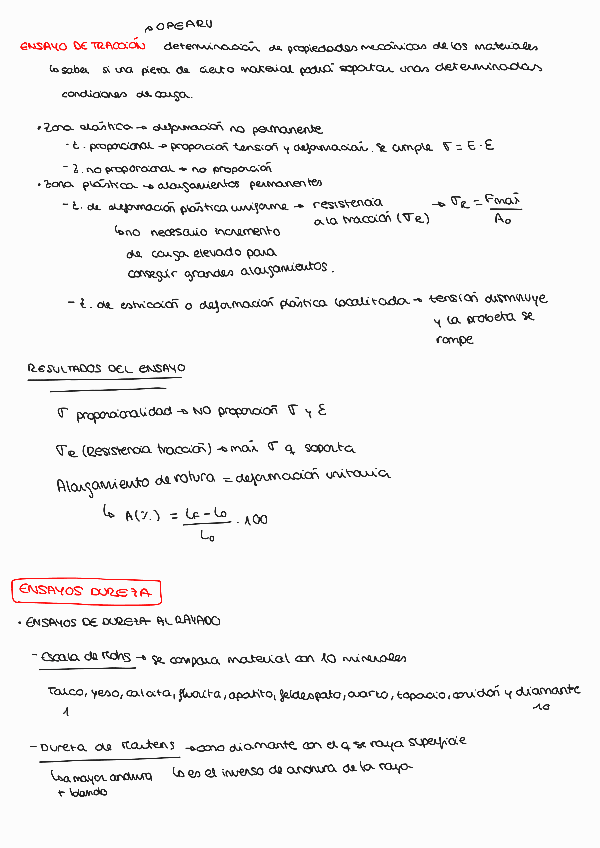 ↳ OPEARU
ENSAYO DE TRACCIÓN determinación de propiedades mecánicas de los materiales
↳ saber si una pieza de cierto material podrá soportar unas determinadas
condiciones de carga.
• Zona elástica → deformación no permanente
- Z. proporcional → proporción tensión y deformación. Se cumple σ = E · ε
- Z. no proporcional → no proporción
• Zona plástica → alargamientos permanentes
- Z. de deformación plástica uniforme → resistencia a la tracción (σR) → σR = Fmáx / A₀
↳ no necesario incremento
de carga elevado para
conseguir grandes alargamientos.
- Z. de estricción o deformación plástica localizada → tensión disminuye
y la probeta se
rompe
RESULTADOS DEL ENSAYO
σ proporcionalidad → NO proporción σ y ε
σR (Resistencia tracción) → máx σ q soporta
Alargamiento de rotura = deformación unitaria
↳ A(%) = LF - L0 / L0 · 100
ENSAYOS DUREZA
• ENSAYOS DE DUREZA AL RAYADO
- Escala de Mohs → se compara material con 10 minerales
Talco, yeso, calcita, fluorita, apatito, feldespato, cuarzo, topacio, coridón y diamante
1 10
- Dureza de Martens → cono diamante con el q se raya superficie
↳ a mayor anchura ↳ es el inverso de anchura de la raya
+ blando